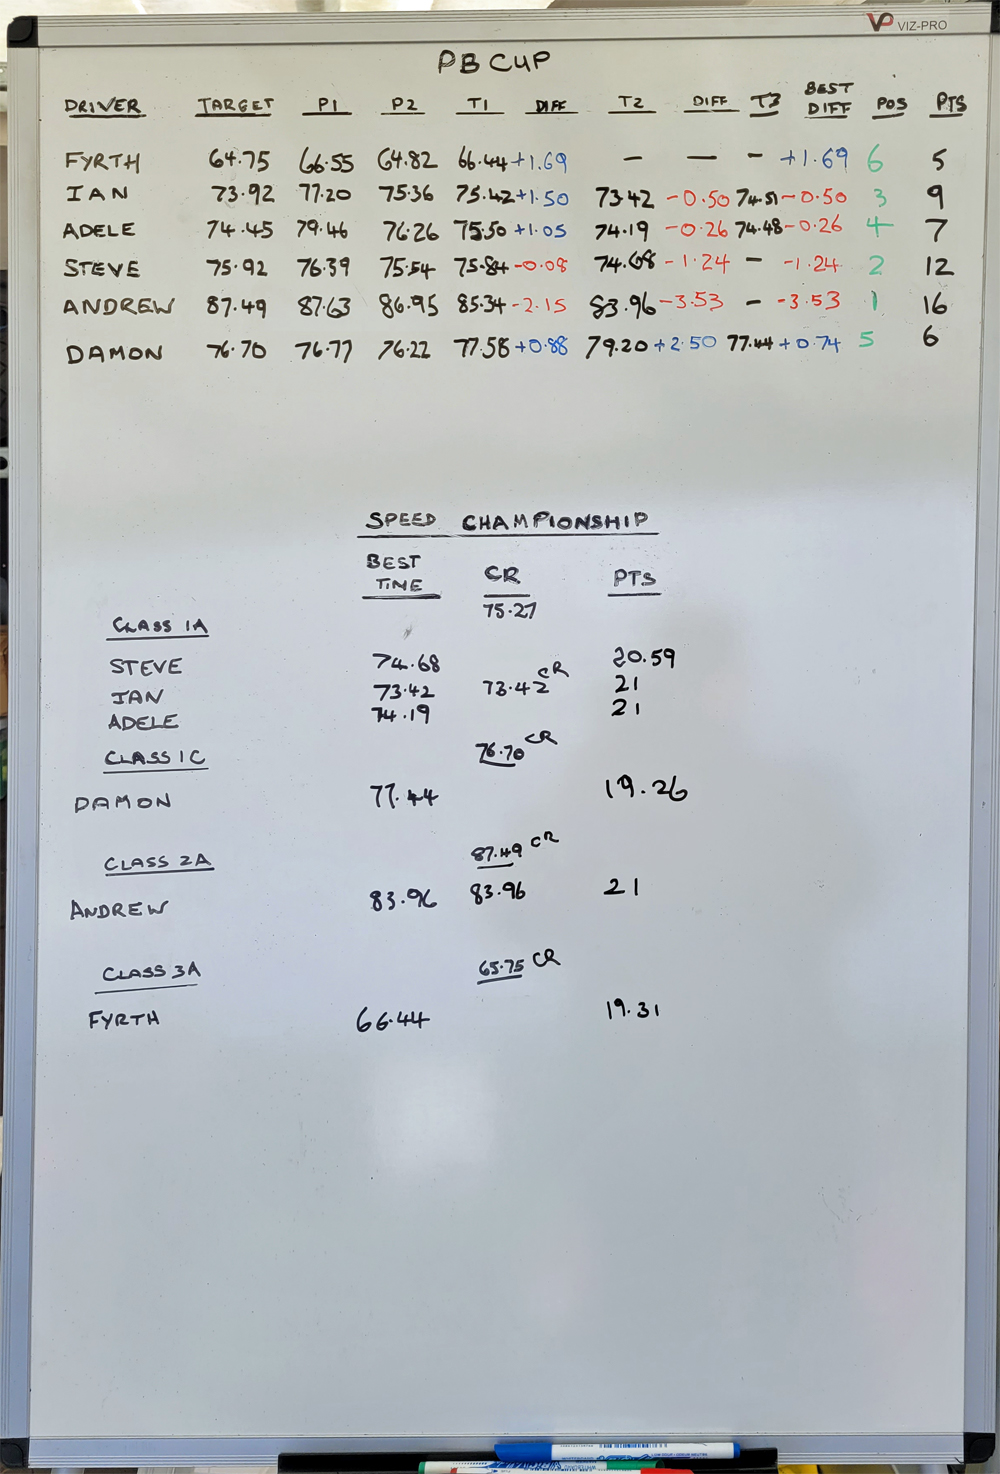 VP VIZ-PRO
PB CUP
DRIVER TARGET P1 P2 T1 DIFF T2 DIFF T3 BEST DIFF POS PTS
FYRTH 64.75 66.55 64.82 66.44 +1.69 - - - +1.69 6 5
IAN 73.92 77.20 75.36 75.42 +1.50 73.42 -0.50 74.51 -0.50 3 9
ADELE 74.45 79.46 76.26 75.50 +1.05 74.19 -0.26 74.48 -0.26 4 7
STEVE 75.92 76.39 75.54 75.84 -0.08 74.68 -1.24 - -1.24 2 12
ANDREW 87.49 87.63 86.95 85.34 -2.15 83.96 -3.53 - -3.53 1 16
DAMON 76.70 76.77 76.22 77.58 +0.88 79.20 +2.50 77.44 +0.74 5 6
SPEED CHAMPIONSHIP
BEST TIME CR PTS
75.27
CLASS 1A
STEVE 74.68 20.59
IAN 73.42 73.42 CR 21
ADELE 74.19 21
CLASS 1C 76.70 CR
DAMON 77.44 19.26
CLASS 2A 87.49 CR
ANDREW 83.96 83.96 21
CLASS 3A 65.75 CR
FYRTH 66.44 19.31